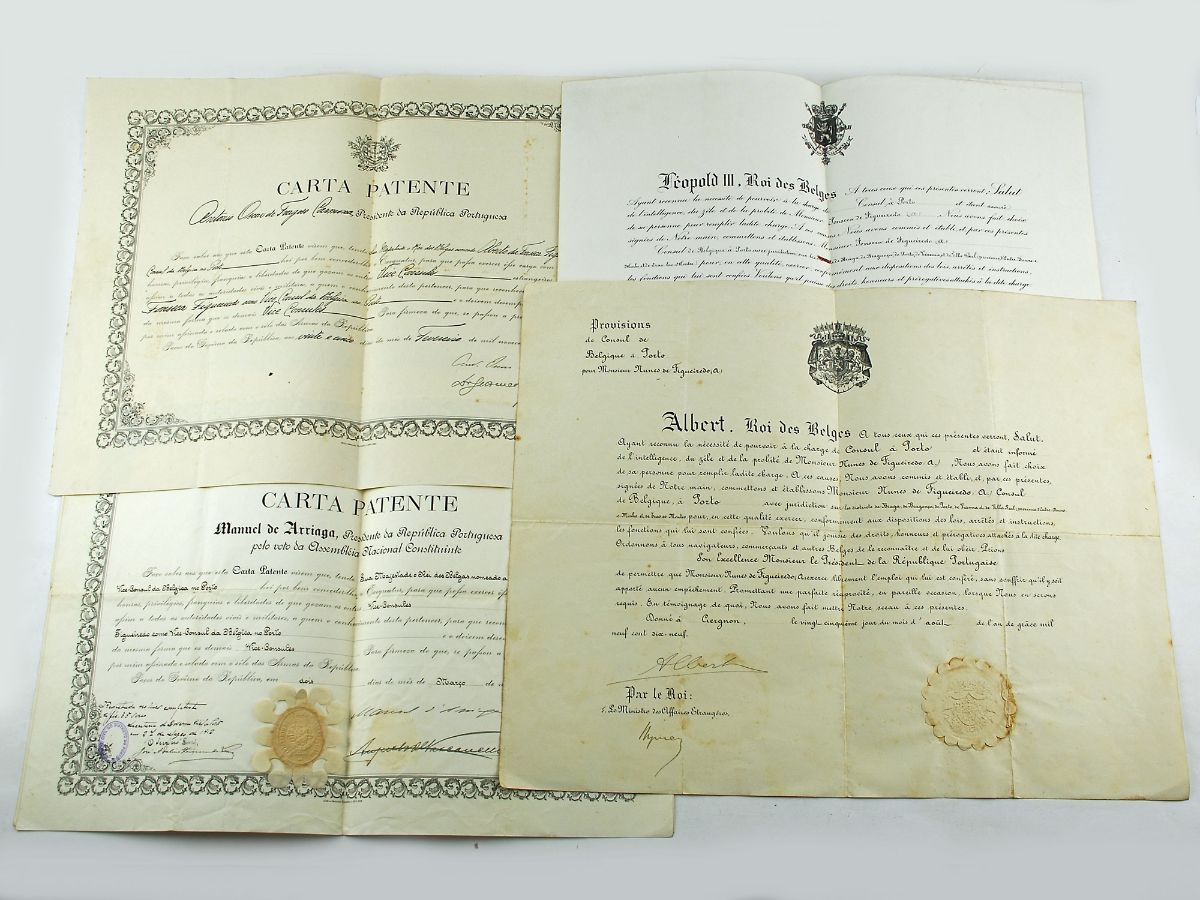 CARTA PATENTE
António Oscar de Fragoso Carmona, Presidente da República Portugueza
Faço saber aos que esta Carta Patente virem que, tendo Magestade o Rei dos Belgas nomeado Alberto da Fonseca
Consul da Belgica no Porto hei por bem conceder-lhe o Exequatur, para que possa exercer esse cargo com
honras, privilegios, franquias e liberdades de que gosam os Vice Consules estrangeiros
assim a todas as autoridades civis e militares, a quem o conhecimento desta pertencer, para que reconheçam
Fonseca Figueiredo como Vice Consul da Belgica no Porto e o deixem desemp
da mesma forma que os demais Vice Consules Para firmeza do que, se passou a pre
por mim assinada e selada com o selo das Armas da Republica
Paços do Governo da Republica, em vinte e cinco dias do mês de Fevereiro de mil novece
Léopold III, Roi des Belges A tous ceux qui ces présentes verront, Salut
Ayant reconnu la nécessité de pourvoir à la charge de Consul à Porto et étant informé
de l'intelligence, du zèle et de la probité de Monsieur Fonseca de Figueiredo (A.) Nous avons fait choix
de sa personne pour remplir ladite charge. A ces causes Nous avons commis et établi, et par ces présentes
signées de Notre main, commettons et établissons Monsieur Fonseca de Figueiredo (A.)
Consul de Belgique à Porto
pour, en cette qualité, exercer, conformément aux dispositions des lois, arrêtés et instructions,
les fonctions qui lui sont confiées. Voulons qu'il jouisse des droits, honneurs et prérogatives attachés à ladite charge
Provisions
de Consul de
Belgique à Porto
pour Monsieur Nunes de Figueiredo, A)
Albert, Roi des Belges A tous ceux qui ces présentes verront, Salut.
Ayant reconnu la nécessité de pourvoir à la charge de Consul à Porto et étant informé
de l'intelligence, du zèle et de la probité de Monsieur Nunes de Figueiredo, A) , Nous avons fait choix
de sa personne pour remplir ladite charge. A ces causes, Nous avons commis et établi, et, par ces présentes,
signées de Notre main, commettons et établissons Monsieur Nunes de Figueiredo, A) Consul
de Belgique, à Porto avec juridiction sur les districts de Braga, de Bragança, de Porto, de Vianna et de Villa Real,
pour, en cette qualité exercer, conformément aux dispositions des lois, arrêtés et instructions,
les fonctions qui lui sont confiées. Voulons qu'il jouisse des droits, honneurs et prérogatives attachés à la dite charge.
Ordonnons à tous navigateurs, commerçants et autres Belges de le reconnaître et de lui obéir. Prions
Son Excellence Monsieur le Président de la République Portugaise
de permettre que Monsieur Nunes de Figueiredo, A exerce librement l'emploi qui lui est conféré, sans souffrir qu'il y soit
apporté aucun empêchement. Promettant une parfaite réciprocité, en pareille occasion, lorsque Nous en serons
requis. En témoignage de quoi, Nous avons fait mettre Notre sceau à ces présentes.
Donné à Ciergnon, le vingt cinquième jour du mois d'août de l'an de grâce mil
neuf cent dix-neuf.
Albert
Par le Roi:
Le Ministre des Affaires Etrangères,
Hymans
CARTA PATENTE
Manuel de Arriaga, Presidente da República Portuguesa
pelo voto da Assembleia Nacional Constituinte
Faço saber aos que esta Carta Patente virem que, tendo Sua Magestade o Rei dos Belgas nomeado a
Vice-Consul da Belgica no Porto hei por bem conceder-lhe o Exequatur, para que possa exercer ess
honras, privilegios, franquias e liberdades de que gosam os outros Vice-Consules
assim a todas as autoridades civis e militares, a quem o conhecimento desta pertencer, para que reconh
Figueiredo como Vice-Consul da Belgica no Porto e o deixem desem
da mesma forma que os demais Vice-Consules Para firmeza do que, se passou a
por mim assinada e selada com o selo das Armas da República
Paços do Governo da República, em dois dias do mês de Março de n
Manuel d'Arriaga
Augusto de Vasconcellos